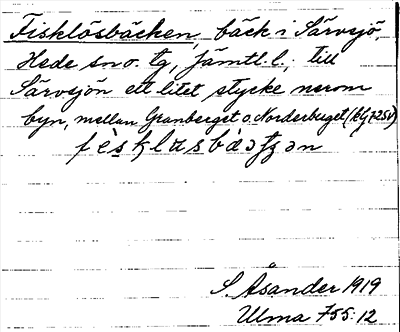 Fisklösbäcken, bäck i Särvsjö,
Hede sn o. tg, Jämtl. l., till
Särvsjön ett litet stycke nerom
byn, mellan Granberget o. Norderberget
S Åsander 1919
Ulma 755:12